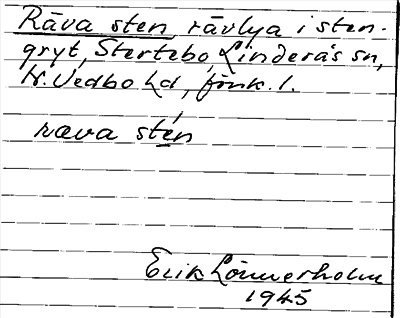 Räva sten rävlya i sten-
gryt, Stertebo, Linderås sn,
N. Vedbo hd, Jönk. l.
ræva stén
Erik Lönnerholm
1945